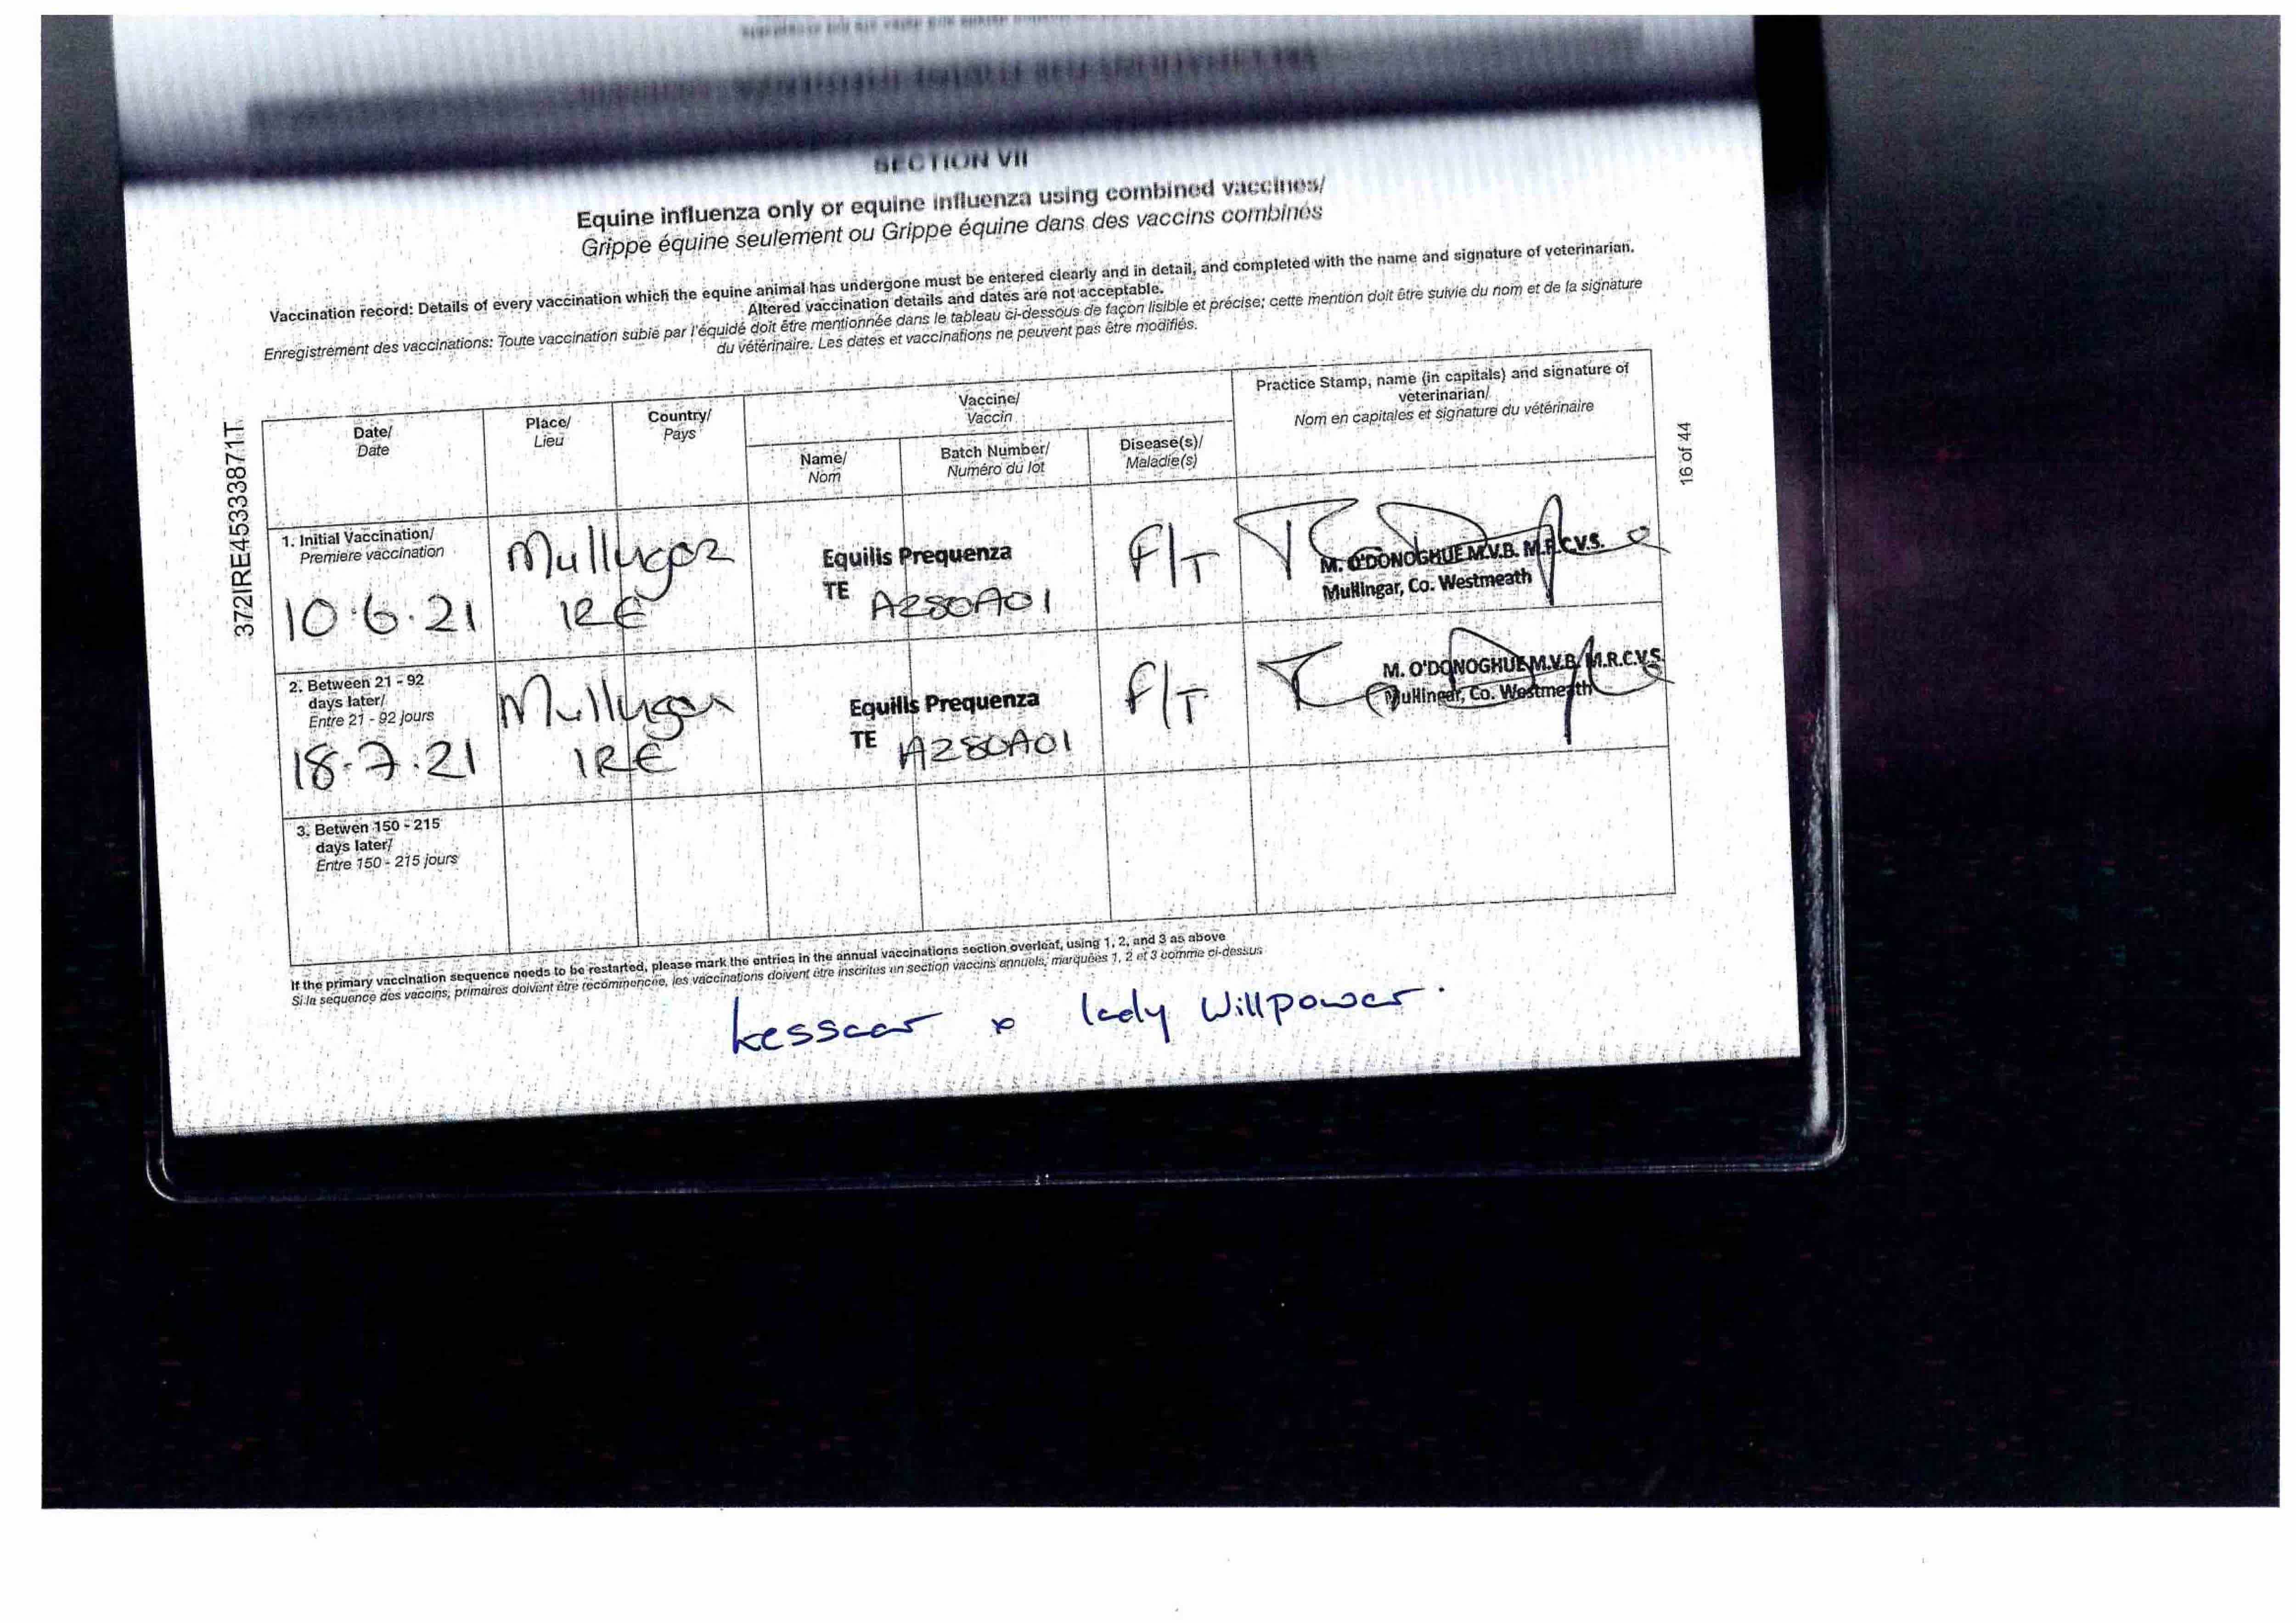 SECTION VII
Equine influenza only or equine influenza using combined vaccines/
Grippe équine seulement ou Grippe équine dans des vaccins combinés
Vaccination record: Details of every vaccination which the equine animal has undergone must be entered clearly and in detail, and completed with the name and signature of veterinarian.
Altered vaccination details and dates are not acceptable.
Enregistrement des vaccinations: Toute vaccination subie par l'équidé doit être mentionnée dans le tableau ci-dessous de façon lisible et précise; cette mention doit être suivie du nom et de la signature
du vétérinaire. Les dates et vaccinations ne peuvent pas être modifiés.
372IRE45333871T
16 of 44
Date/
Date
Place/
Lieu
Country/
Pays
Vaccine/
Vaccin
Name/
Nom
Batch Number/
Numéro du lot
Disease(s)/
Maladie(s)
Practice Stamp, name (in capitals) and signature of
veterinarian/
Nom en capitales et signature du vétérinaire
1. Initial Vaccination/
Premiere vaccination
10.6.21
Mullingar
IRE
Equilis Prequenza
TE A280A01
F/T
M. O'DONOGHUE M.V.B. M.R.C.V.S.
Mullingar, Co. Westmeath
2. Between 21 - 92
days later/
Entre 21 - 92 jours
18.7.21
Mullingar
IRE
Equilis Prequenza
TE A280A01
F/T
M. O'DONOGHUE M.V.B. M.R.C.V.S.
Mullingar, Co. Westmeath
3. Betwen 150 - 215
days later/
Entre 150 - 215 jours
If the primary vaccination sequence needs to be restarted, please mark the entries in the annual vaccinations section overleaf, using 1, 2, and 3 as above
Si la séquence des vaccins, primaires doivent être recommencée, les vaccinations doivent être inscrites en section vaccins annuels, marquées 1, 2 et 3 comme ci-dessus
kessaar x lady Willpower.